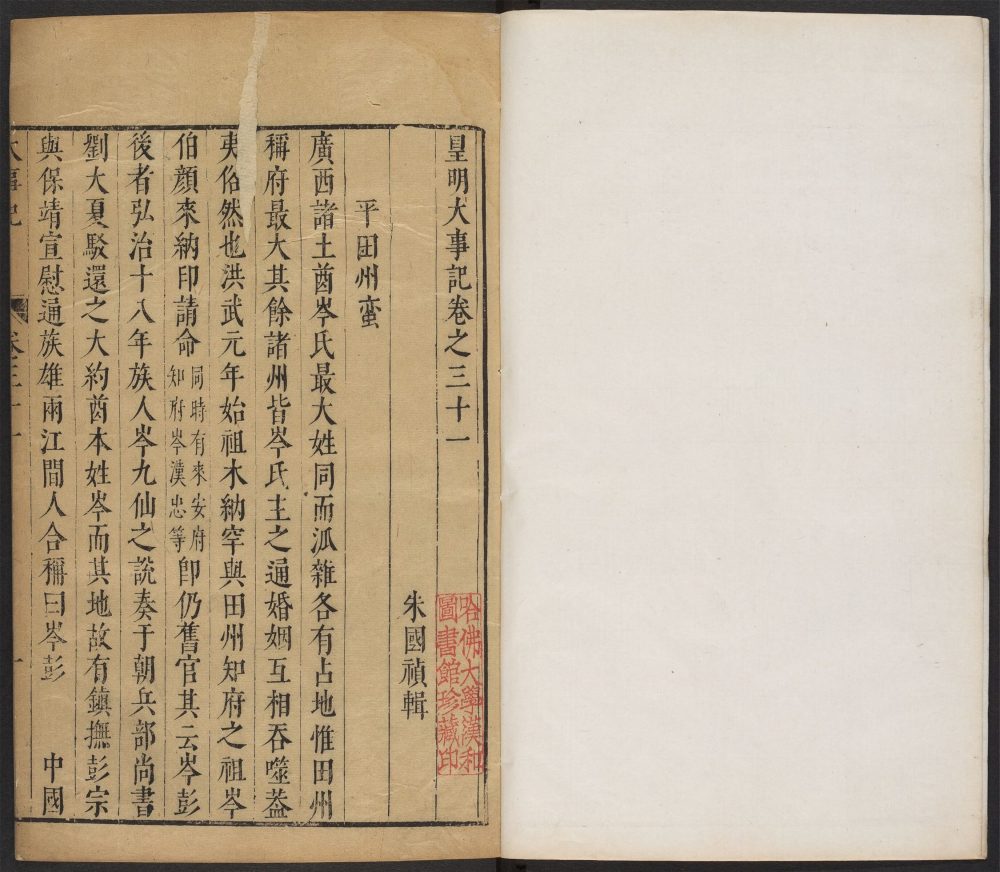 皇明大事記卷之三十一
朱國禎輯
平田州蠻
廣西諸土酋岑氏最大姓同而派雜各有占地惟田州
稱府最大其餘諸州皆岑氏主之通婚姻互相吞噬蓋
夷俗然也洪武元年始祖木納罕與田州知府之祖岑
伯顏來納印請命同時有來安府知府岑漢忠等即仍舊官其云岑彭
後者弘治十八年族人岑九仙之說奏于朝兵部尚書
劉大夏駁還之大約酋本姓岑而其地故有鎮撫彭宗
與保靖宣慰通族雄兩江間人合稱曰岑彭 中國
大事記 卷三十一 一
哈佛大學漢和
圖書館珍藏印